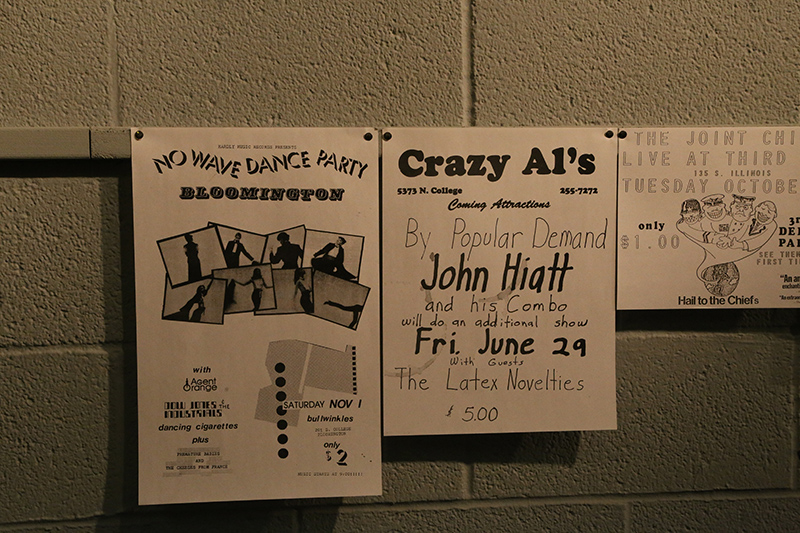 HARDLY MUSIC RECORDS PRESENTS
NO WAVE DANCE PARTY
BLOOMINGTON
with
Agent
Orange
DOW JONES & THE
INDUSTRIALS
dancing cigarettes
plus
AND
THE CADDIES FROM FRANCE
SATURDAY NOV 1
bullwinkles
BLOOMINGTON
only
$2
Crazy Al's
5373 N. College 255-7272
Coming Attractions
By Popular Demand
John Hiatt
and his Combo
will do an additional show
Fri. June 29
With Guests
The Latex Novelties
$ 5.00
THE JOINT CHI
LIVE AT THIRD
135 S. ILLINOIS
TUESDAY OCTOBE
only
$1.00
3r
DE
PA
SEE THE
FIRST TI
"An a
enchanti
Hail to the Chiefs